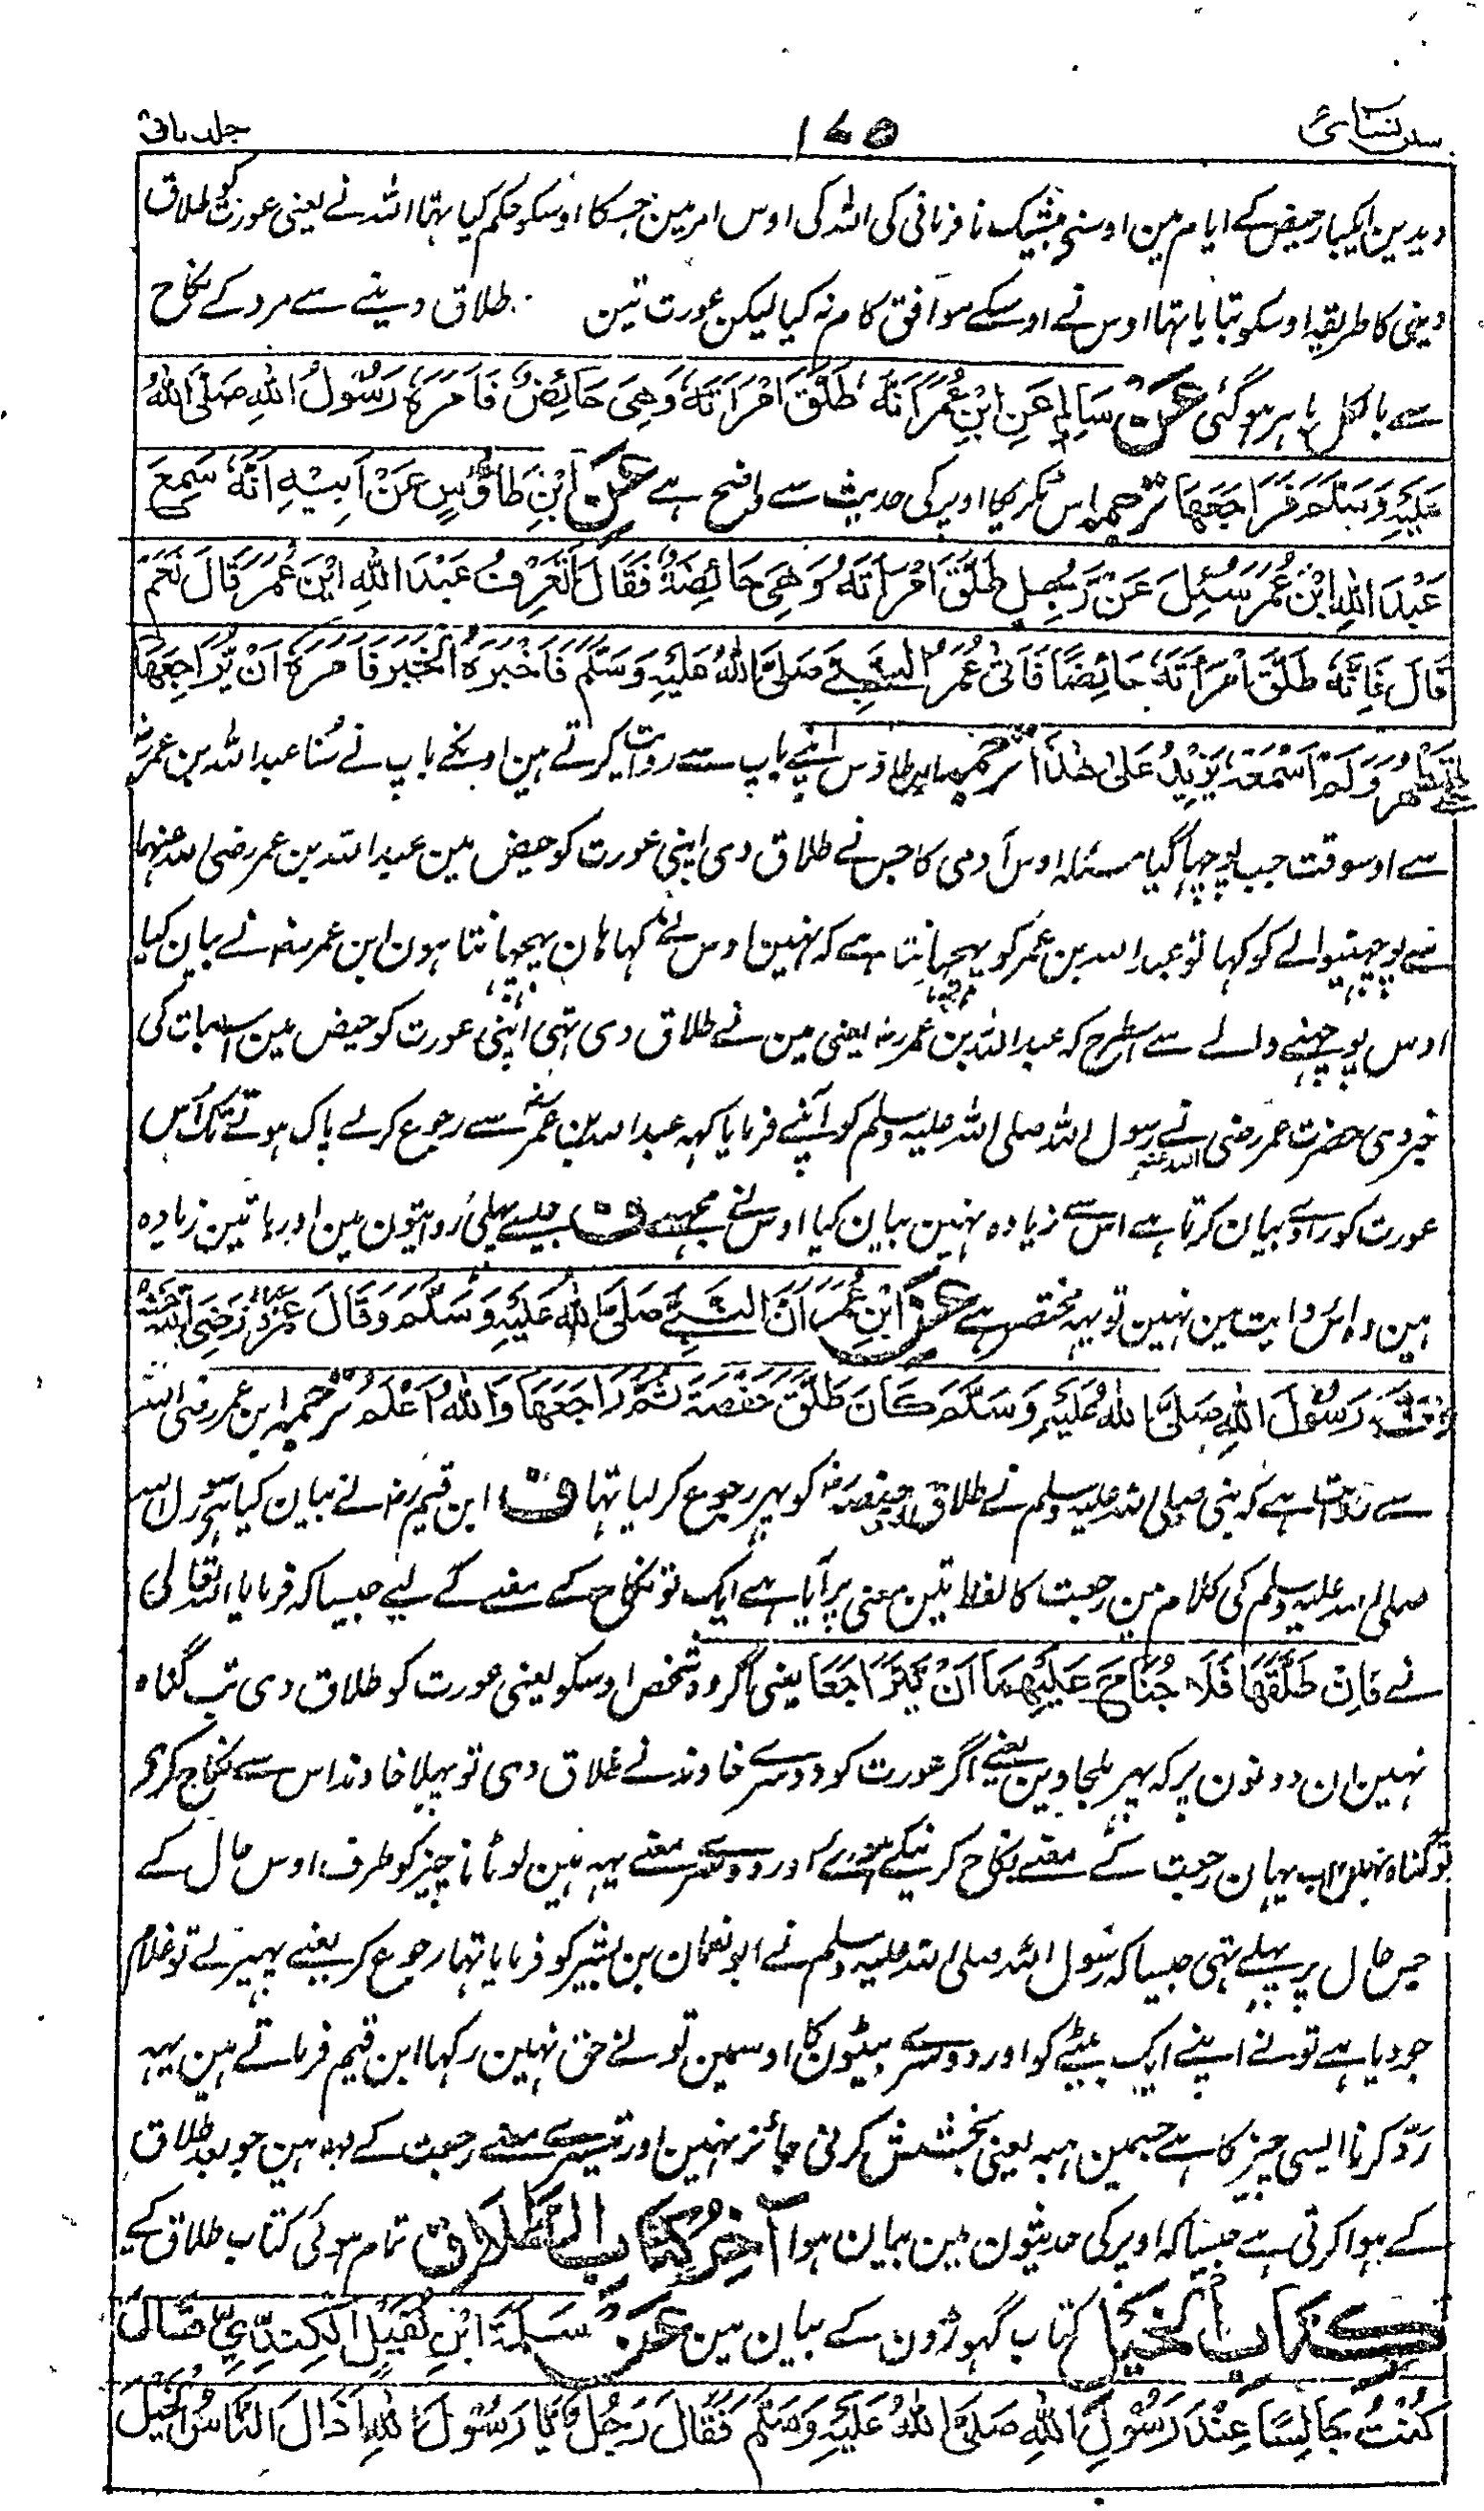 سنن نسائی ۱۷۵ جلد ثانی
دیدین ایکبار حیض کے ایام مین اوسنے بیشک نافرمانی کی اللہ کی اوس امر مین جسکا اوسکو حکم کیا تہا اللہ نے یعنی عورت کو طلاق
دینی کا طریقہ اوسکو بتایا تہا اوس نے اوسکے موافق کام نہ کیا لیکن عورت تین طلاق دینے سے مرد کے نکاح
سے بالکل باہر ہوگئی عَنْ سَالِمٍ عَنِ ابْنِ عُمَرَ اَنَّهٗ طَلَّقَ امْرَاَتَهٗ وَهِيَ حَائِضٌ فَاَمَرَهٗ رَسُوْلُ اللهِ صَلَّى اللهُ
عَلَيْهِ وَسَلَّمَ فَرَاجَعَهَا ترجمہ اس کا اوپر کی حدیث سے واضح ہے عَنْ ابْنِ طَاؤُسٍ عَنْ اَبِيْهِ اَنَّهٗ سَمِعَ
عَبْدَ اللهِ ابْنَ عُمَرَ سُئِلَ عَنْ رَجُلٍ طَلَّقَ امْرَاَتَهٗ وَهِيَ حَائِضَةٌ فَقَالَ اَتَعْرِفُ عَبْدَ اللهِ ابْنَ عُمَرَ قَالَ نَعَمْ
قَالَ فَاِنَّهٗ طَلَّقَ امْرَاَتَهٗ حَائِضًا فَاَتٰى عُمَرُ النَّبِيَّ صَلَّى اللهُ عَلَيْهِ وَسَلَّمَ فَاَخْبَرَهُ الْخَبَرَ فَاَمَرَهٗ اَنْ يُّرَاجِعَهَا
حَتّٰى تَطْهُرَ وَلَمْ اَسْمَعْهُ يَزِيْدُ عَلٰى هٰذَا ترجمہ ابن طاؤس اپنے باپ سے روایت کرتے ہین اونکے باپ نے سُنا عبداللہ بن عمرؓ
سے اوسوقت جب پوچہا گیا مسئلہ اوس آدمی کا جس نے طلاق دی اپنی عورت کو حیض مین عبداللہ بن عمر رضی اللہ عنہما
نے پوچہنیوالے کو کہا تو عبداللہ بن عمر کو پہچانتا ہے کہ نہین اوس نے کہا ہان پہچانتا ہون ابن عمرؓ نے بیان کیا
اوس پوچہنے والے سے اسطرح کہ عبداللہ بن عمرؓ یعنی مین نے طلاق دی تہی اپنی عورت کو حیض مین اسبات کی
خبر دی حضرت عمر رضی اللہ عنہ نے رسول اللہ صلی اللہ علیہ وسلم کو آپنے فرمایا کہہ عبداللہ بن عمرؓ سے رجوع کرلے پاک ہونے تک اُس
عورت کو راوی بیان کرتا ہے اس سے زیادہ نہین بیان کیا اوس نے مجہسے ف جیسے پہلی روایتون مین اور باتین زیادہ
ہین وہ اس روایت مین نہین تو یہہ مختصر ہے عَنْ ابْنِ عُمَرَ اَنَّ النَّبِيَّ صَلَّى اللهُ عَلَيْهِ وَسَلَّمَ وَقَالَ
رَسُوْلَ اللهِ صَلَّى اللهُ عَلَيْهِ وَسَلَّمَ كَانَ طَلَّقَ حَفْصَةَ ثُمَّ رَاجَعَهَا وَاللهُ اَعْلَمُ ترجمہ ابن عمر رضی اللہ
سے روایت ہے کہ نبی صلی اللہ علیہ وسلم نے طلاق دی حفصہؓ کو پہر رجوع کرلیا تہا ف ابن قیمؒ نے بیان کیا ہے رسول اللہ
صلی اللہ علیہ وسلم کی کلام مین رجعت کا لفظ تین معنی پر آیا ہے ایک تو نکاح کے معنے کے لیے جیسا کہ فرمایا اللہ تعالی
نے فَاِنْ طَلَّقَهَا فَلَا جُنَاحَ عَلَيْهِمَا اَنْ يَّتَرَاجَعَا یعنی اگر وہ شخص اوسکو یعنی عورت کو طلاق دی تب گناہ
نہین ان دونون پر کہ پہر ملجاوین یعنے اگر عورت کو دوسرے خاوند نے طلاق دی تو پہلا خاوند اس سے نکاح کری
تو گناہ نہین اب یہان رجعت کے معنے نکاح کرنیکے ہوئے اور دوسرے معنے یہہ ہین لوٹانا چیز کو طرف اوس حال کے
جس حال پر پہلے تہی جیسا کہ رسول اللہ صلی اللہ علیہ وسلم نے ابو نعمان بن بشیر کو فرمایا تہا رجوع کر یعنے پہیر لے تو غلام
جو دیا ہے تو نے اپنے ایک بیٹے کو اور دوسرے بیٹون کا اوسمین تو نے حق نہین رکہا ابن قیم فرماتے ہین یہہ
ردّ کرنا ایسی چیز کا ہے جسمین ہبہ یعنی بخشش کرنی جائز نہین اور تیسرے معنے رجعت کے وہ ہین جو بعد طلاق
کے ہوا کرتی ہے جیسا کہ اوپر کی حدیثون مین بیان ہوا آخِرُ كِتَابِ الطَّلَاقِ تمام ہوئی کتاب طلاق کے
كِتَابُ الْخَيْلِ کتاب گہوڑون کے بیان مین عَنْ سَلَمَةَ ابْنِ نُفَيْلٍ الْكِنْدِيِّ قَالَ
كُنْتُ جَالِسًا عِنْدَ رَسُوْلِ اللهِ صَلَّى اللهُ عَلَيْهِ وَسَلَّمَ فَقَالَ رَجُلٌ يَا رَسُوْلَ اللهِ اَذَالَ النَّاسُ الْخَيْلَ